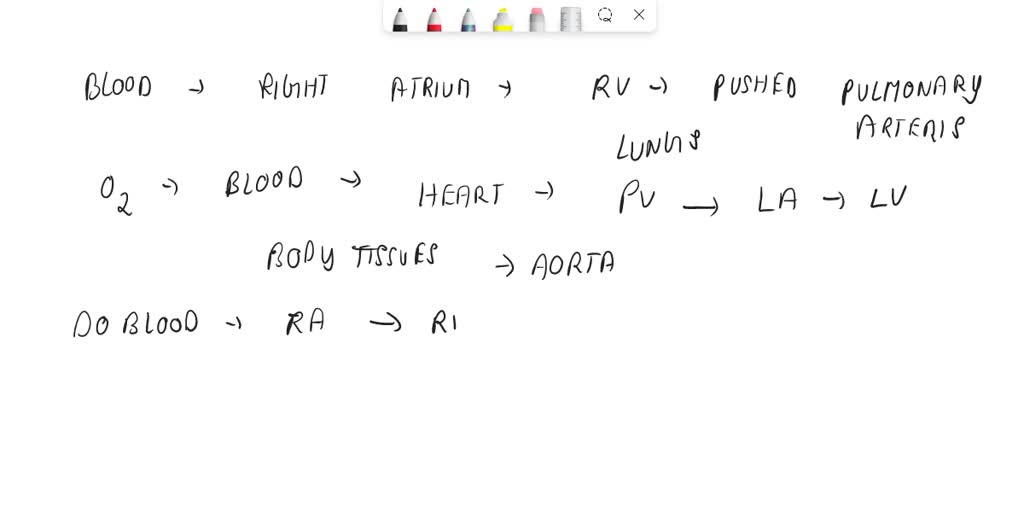 BLOOD → RIGHT ATRIUM → RV → PUSHED PULMONARY
ARTERIS
LUNGS
O2 → BLOOD → HEART → PV → LA → LV
BODY TISSUES → AORTA
DO BLOOD → RA → RI